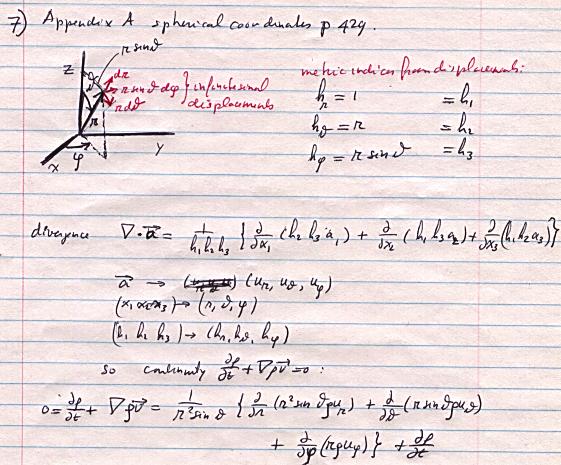 7) Appendix A spherical coordinates p 429.
r sinϑ
z
dr
r sinϑ dφ } infinitesimal displacements
r dϑ
r
φ
x
y
metric indices from displacements:
h_r = 1 = h_1
h_ϑ = r = h_2
h_φ = r sinϑ = h_3
divergence ∇·a⃗ = 1/(h_1 h_2 h_3) { ∂/∂x_1 (h_2 h_3 a_1) + ∂/∂x_2 (h_1 h_3 a_2) + ∂/∂x_3 (h_1 h_2 a_3) }
a⃗ → (u_r, u_ϑ, u_φ)
(x_1 x_2 x_3) → (r, ϑ, φ)
(h_1 h_2 h_3) → (h_r, h_ϑ, h_φ)
so continuity ∂ρ/∂t + ∇ρv⃗ = 0 :
0 = ∂ρ/∂t + ∇ρv⃗ = 1/(r² sinϑ) { ∂/∂r (r² sinϑ ρu_r) + ∂/∂ϑ (r sinϑ ρu_ϑ)
+ ∂/∂φ (rρu_φ) } + ∂ρ/∂t